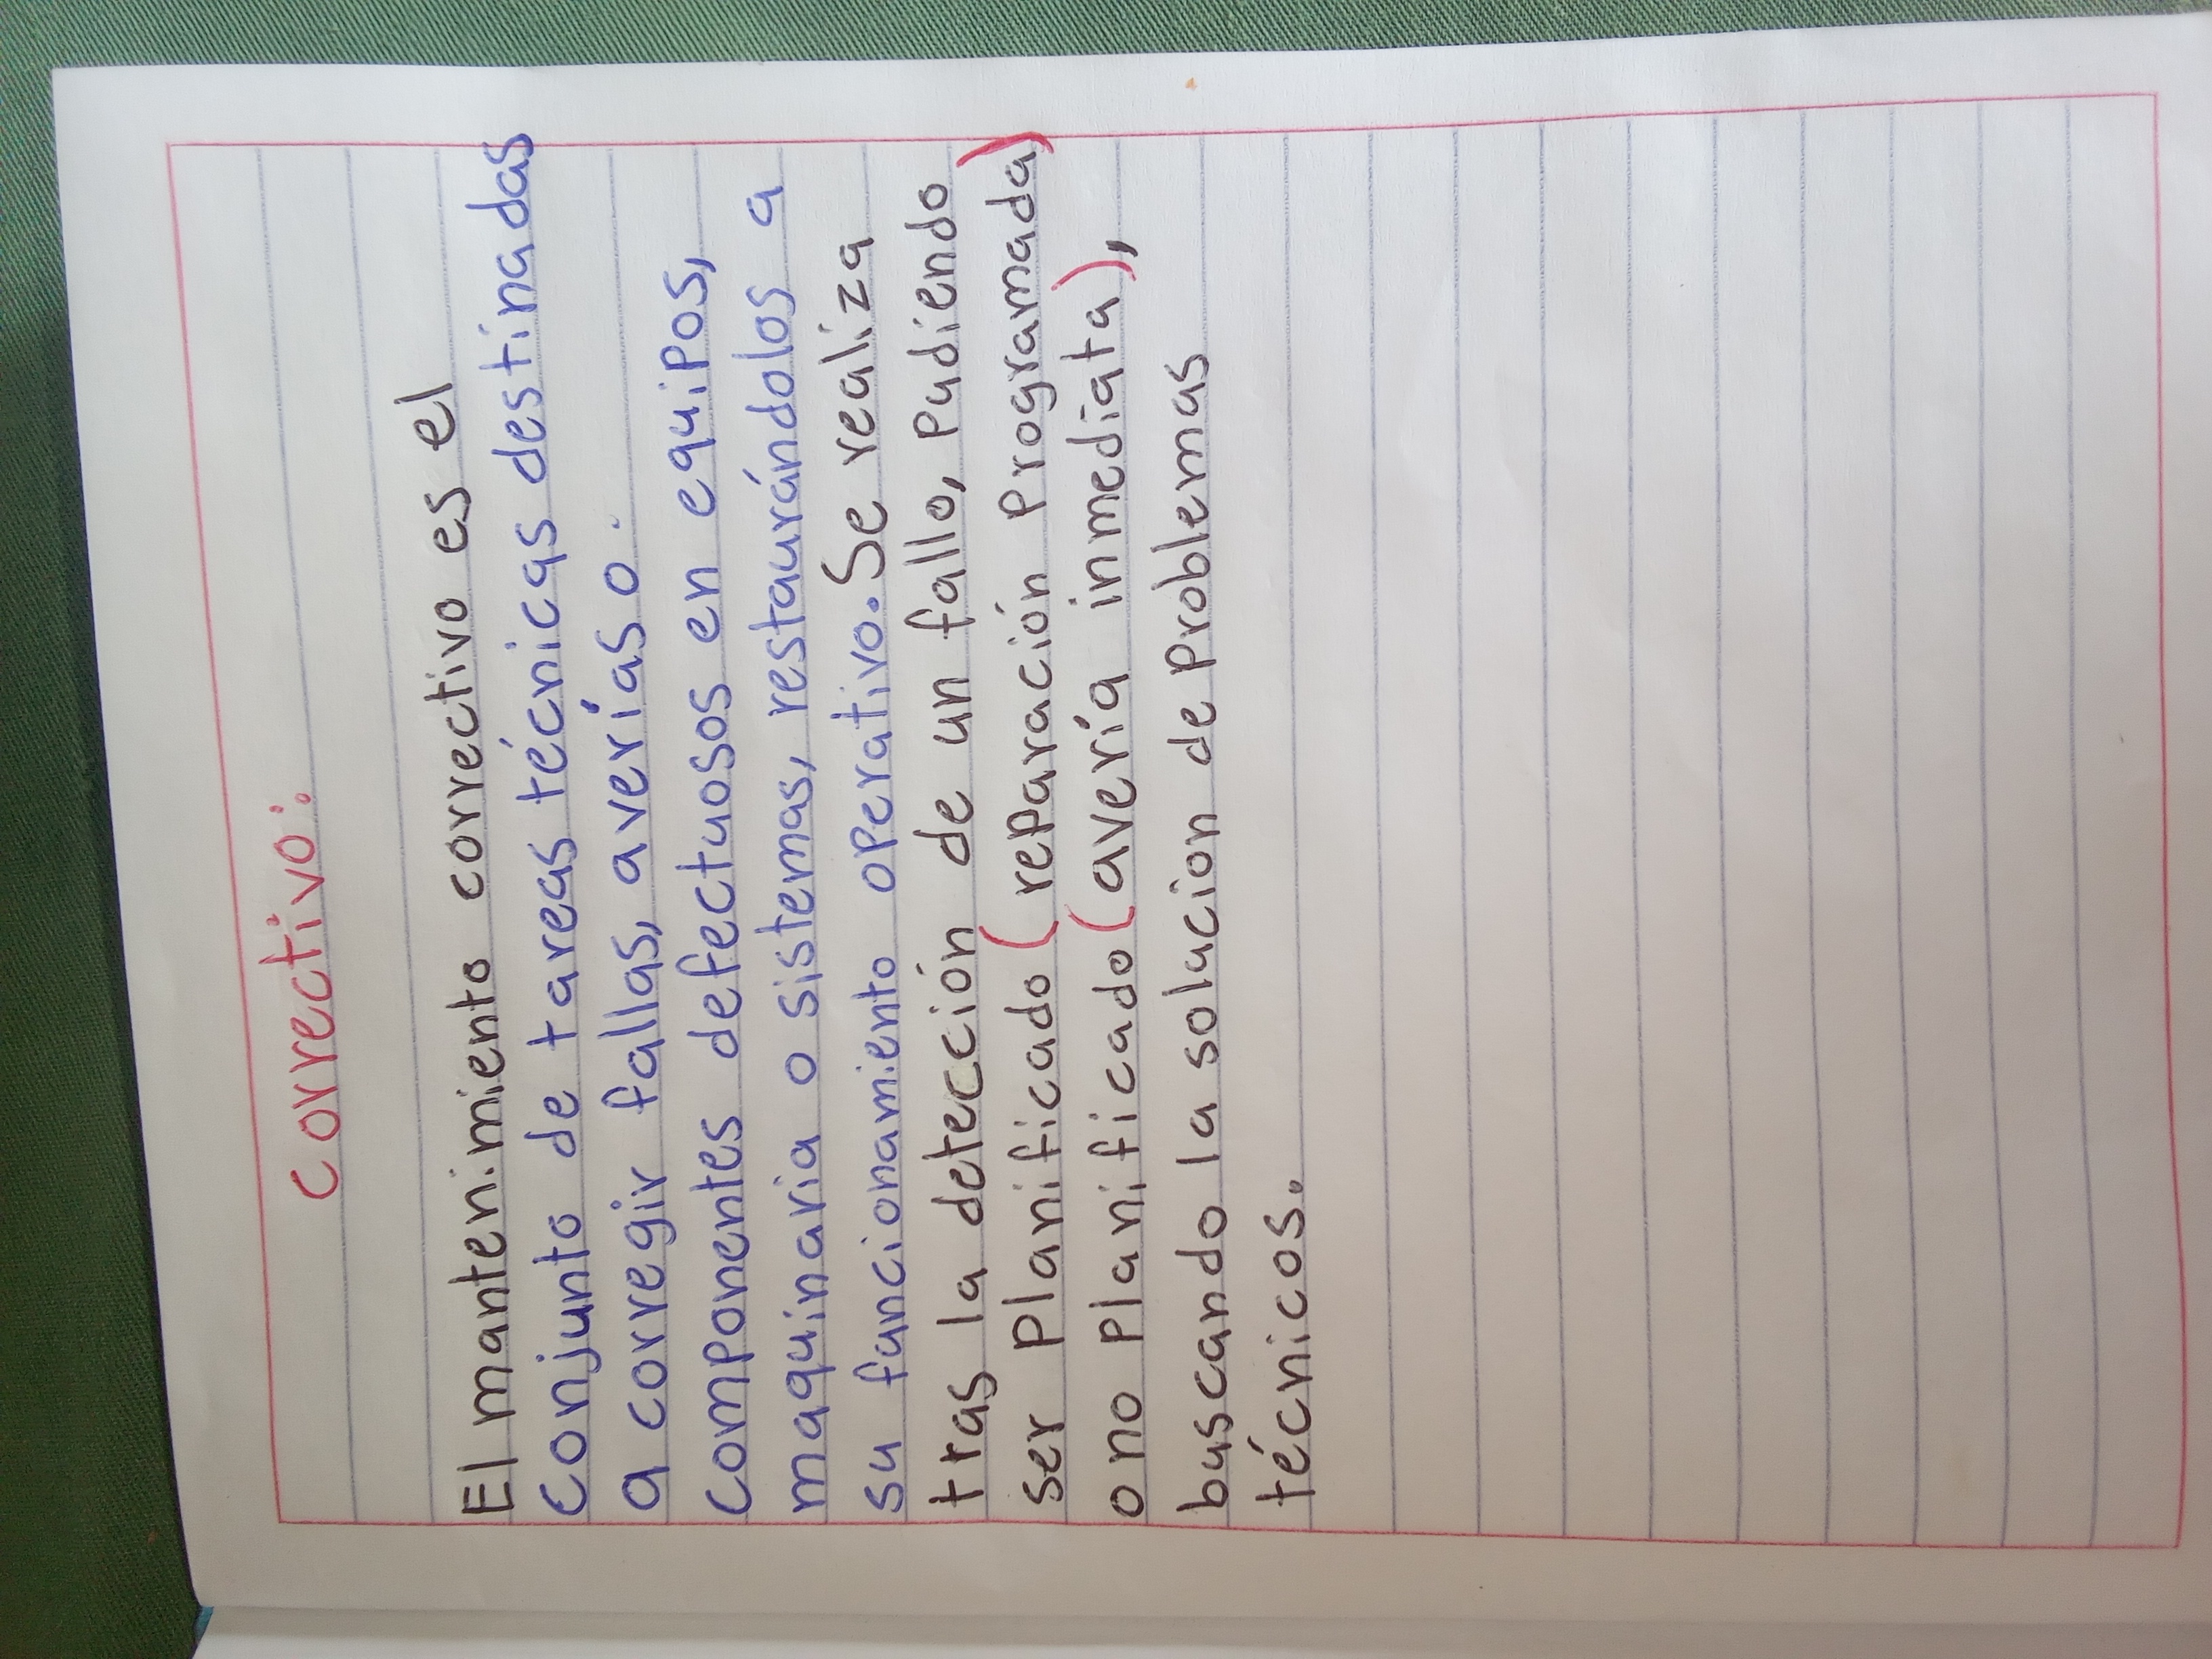 correctivo:
El mantenimiento correctivo es el
conjunto de tareas técnicas destinadas
a corregir fallas, averías o.
componentes defectuosos en equipos,
maquinaria o sistemas, restaurándolos a
su funcionamiento operativo. Se realiza
tras la detección de un fallo, pudiendo
ser planificado (reparación programada)
o no planificado (avería inmediata),
buscando la solucion de problemas
técnicos.